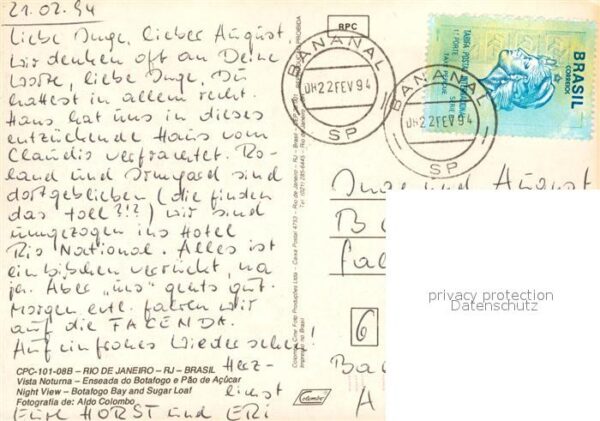 21.02.94
Liebe Inge, lieber August,
wir denken oft an Deine
Worte, liebe Inge. Du
hattest in allem recht.
Hans hat uns in dieses
entzückende Haus vom
Claudio verfrachtet. Ro-
land und Irmgard sind
dortgeblieben (die finden
das toll?!?) wir sind
umgezogen ins Hotel
Rio National. Alles ist
ein bißchen verrückt, na
ja. Aber "uns" gehts gut.
Morgen evtl. fahren wir
auf die FACENDA.
Auf ein frohes Wiedersehen!
Herz-
lichst
Eure HORST und ERI
CPC-101-08B – RIO DE JANEIRO – RJ – BRASIL
Vista Noturna – Enseada do Botafogo e Pão de Açúcar
Night View – Botafogo Bay and Sugar Loaf
Fotografia de: Aldo Colombo
Colombo
Colombo Cine Foto Produções Ltda – Caixa Postal 4753 – Rio de Janeiro – RJ – Brasil
Impresso no Brasil
RPC
BANANAL
DH22FEV94
SP
BANANAL
DH22FEV94
SP
BRASIL
CORREIOS
1º PORTE
Inge und August
6
privacy protection
Datenschutz